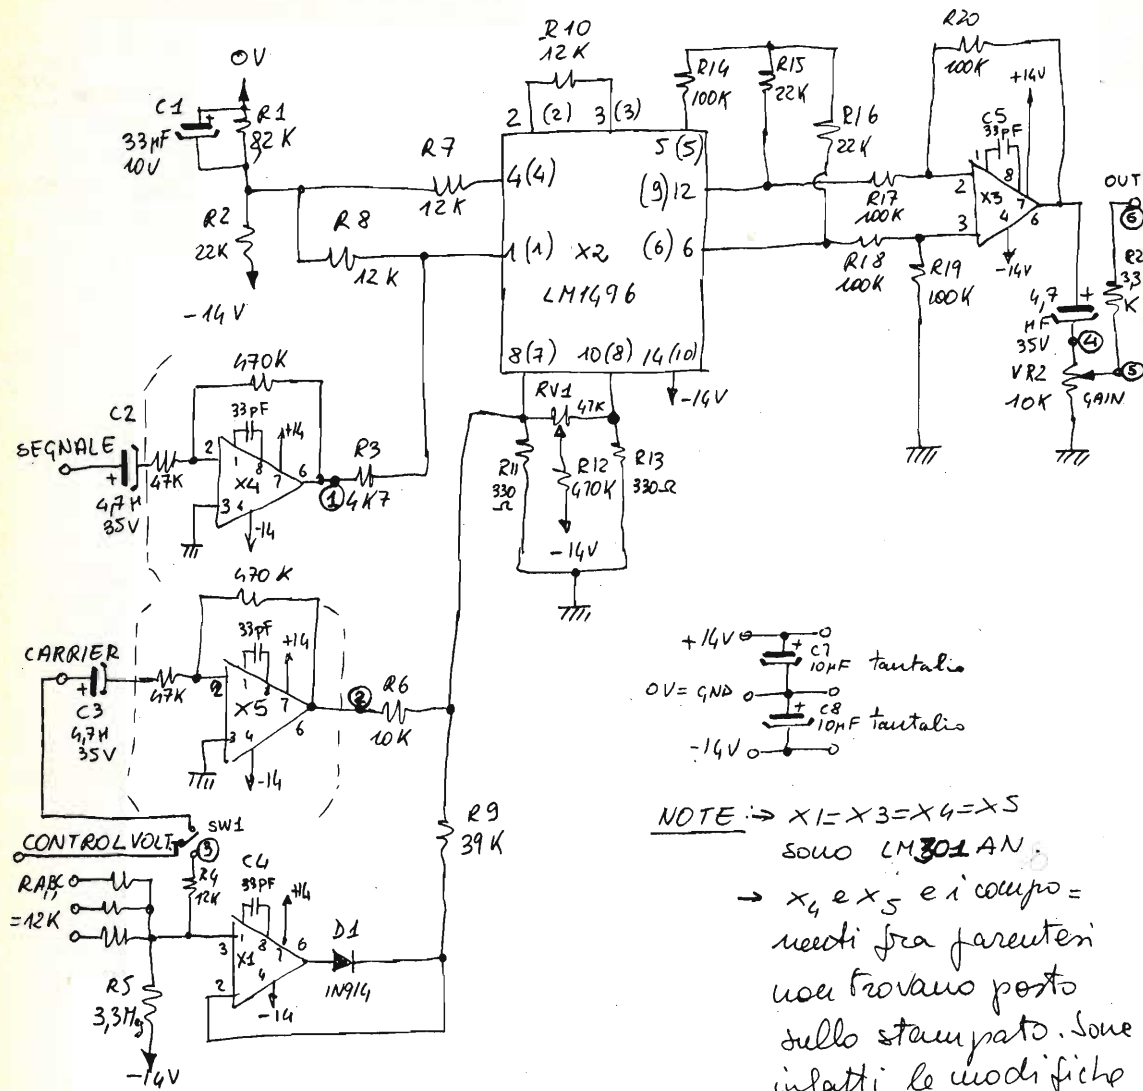 0V
C1
33µF
10V
R1
82K
R2
22K
-14V
R7
12K
R8
12K
R10
12K
2 (2) 3 (3)
4(4)
1(1)
X2
LM1496
5(5)
(9)12
(6) 6
8(7) 10(8) 14(10)
-14V
R14
100K
R15
22K
R16
22K
R17
100K
R18
100K
R19
100K
R20
100K
+14V
C5
33pF
1
8
2
3
X3
7
4
6
-14V
OUT
6
R2
3,3
K
4,7
µF
35V
4
5
VR2
10K
GAIN
SEGNALE
C2
4,7µ
35V
47K
470K
33pF
+14
2
1
8
7
6
X4
3
4
-14
1
R3
4K7
RV1
47K
R11
330
Ω
R12
470K
R13
330Ω
-14V
CARRIER
C3
4,7µ
35V
47K
470K
33pF
+14
2
1
8
7
6
X5
3
4
-14
2
R6
10K
R9
39K
CONTROL VOLT.
SW1
3
RA,B,C
=12K
R4
12K
C4
33pF
+14
3
1
8
7
6
X1
2
4
-14
D1
1N914
R5
3,3Meg
-14V
+14V
C7
10µF tantalio
0V=GND
C8
10µF tantalio
-14V
NOTE :→ X1=X3=X4=X5
sono LM301AN.
→ X4 e X5 e i compo=
nenti fra parentesi
non trovano posto
sullo stampato. Sono
infatti le modifiche